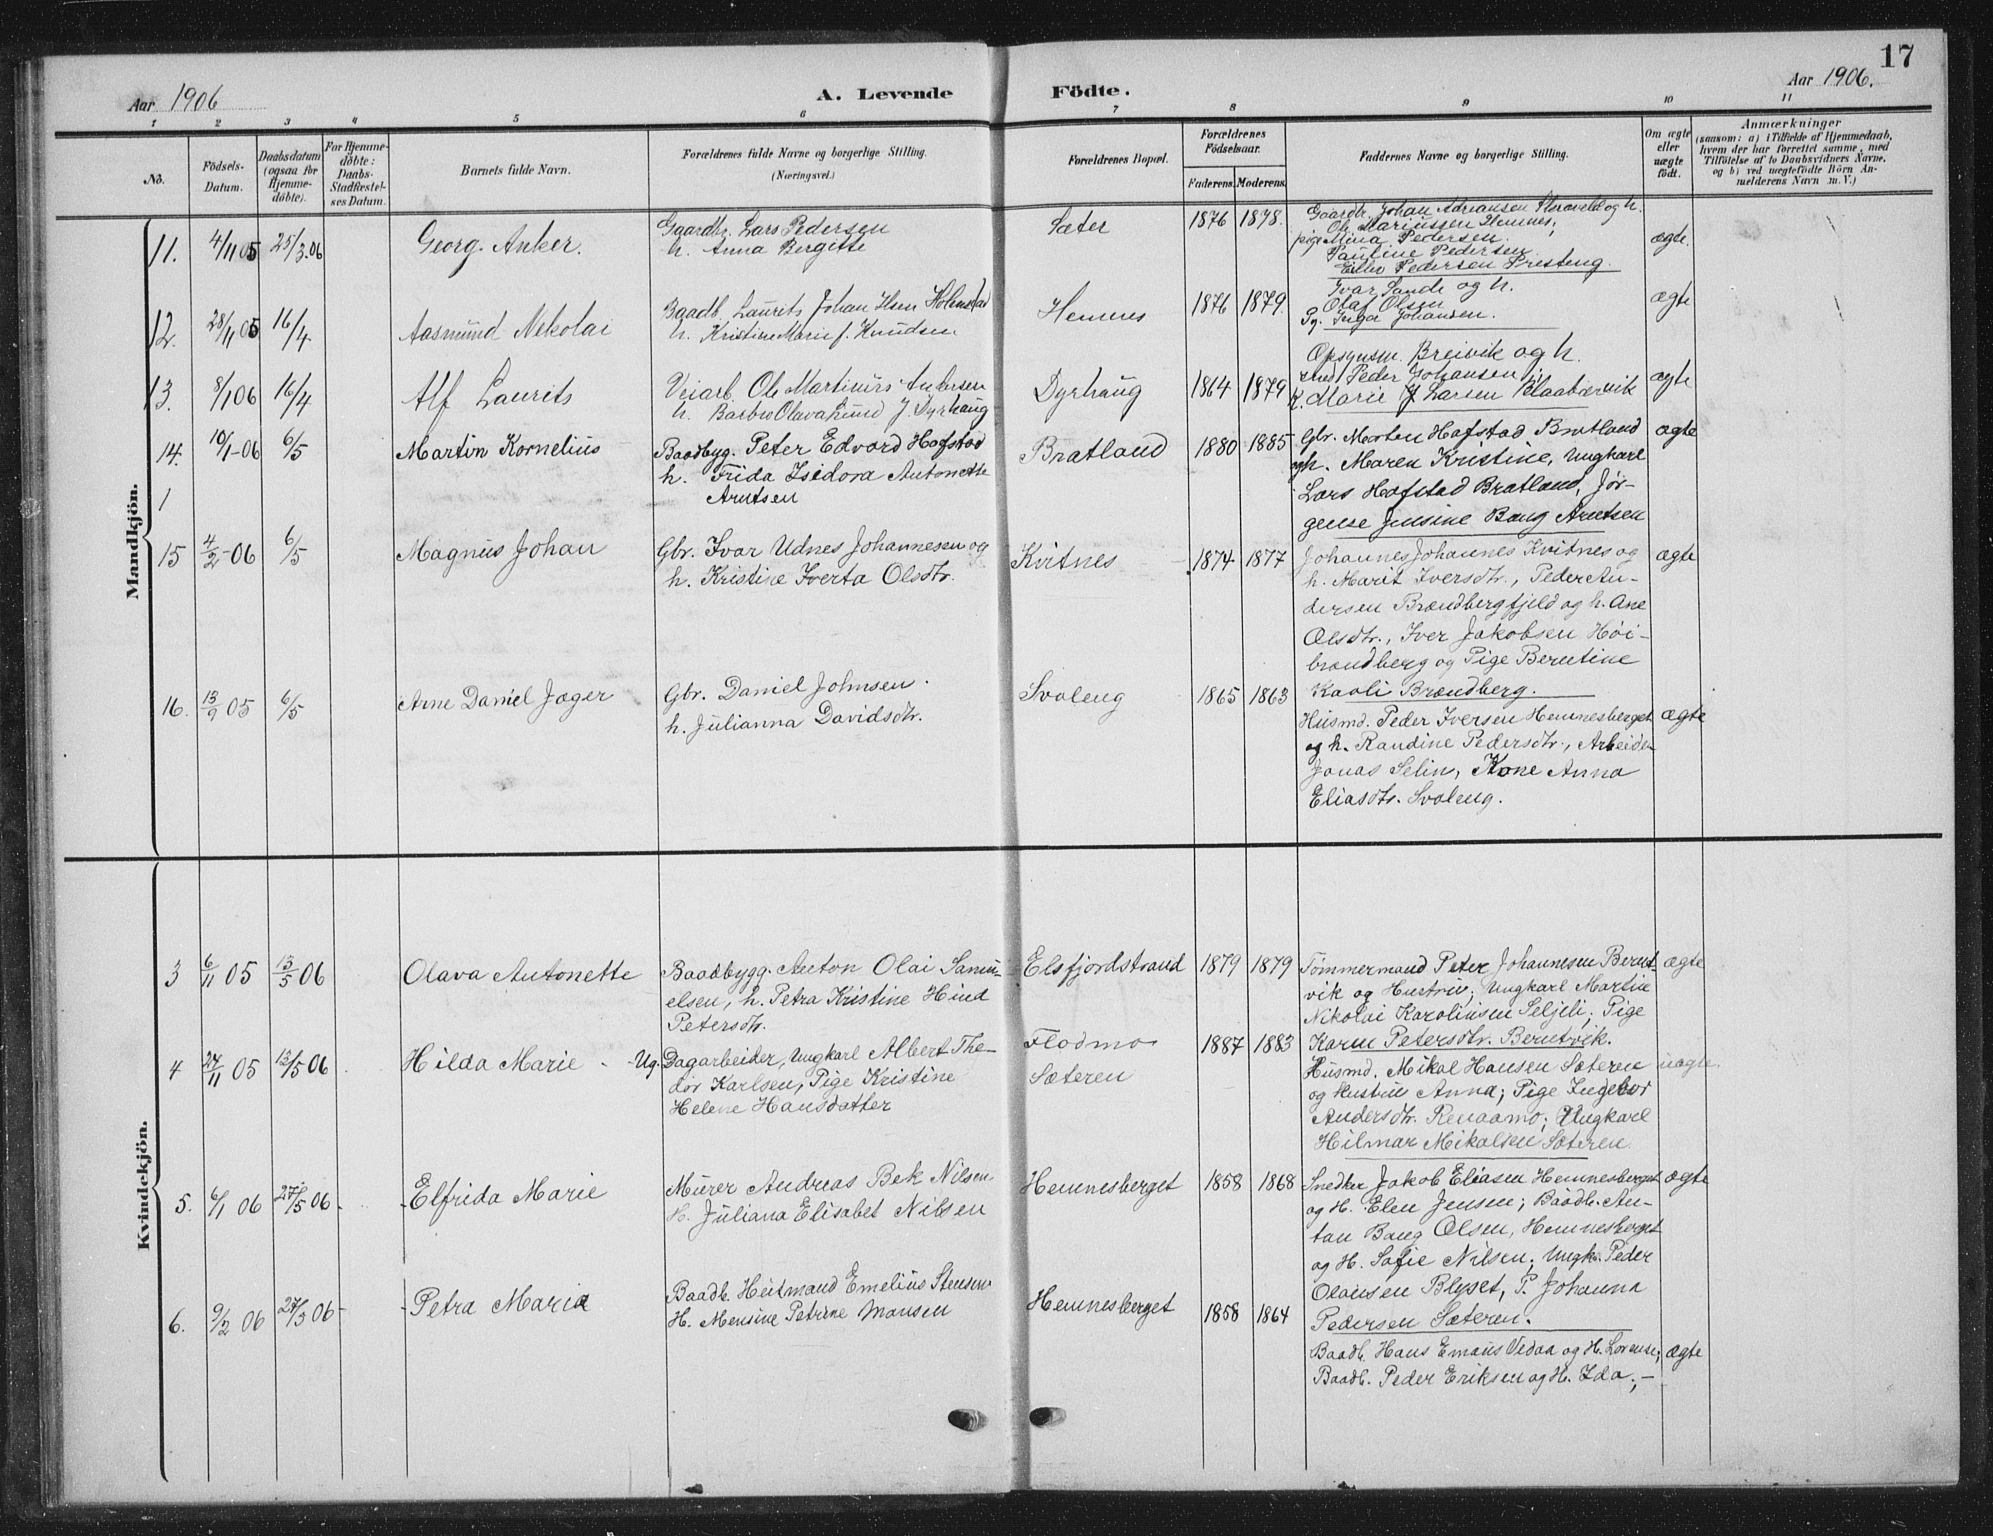 17
Aar 1906
A. Levende Födte.
Aar 1906.
1 2 3 4 5 6 7 8 9 10 11
No.
Födsels-
Datum.
Daabsdatum
(ogsaa for
Hjemme-
döbte).
For Hjemme-
döbte:
Daabs-
Stadfæstel-
ses Datum.
Barnets fulde Navn.
Forældrenes fulde Navne og borgerlige Stilling.
(Næringsvei.)
Forældrenes Bopæl.
Forældrenes
Födselsaar.
Faderens. Moderens.
Faddernes Navne og borgerlige Stilling.
Om ægte
eller
uægte
födt.
Anmærkninger
(saasom: a) i Tilfælde af Hjemmedaab,
hvem der har forrettet samme, med
Tilföielse af to Daabsvidners Navne,
og b) ved uægtefödte Börn An-
melderens Navn m. V.)
Mandkjön.
11. 4/11 05 25/3.06 Georg Anker.
Gaardbr. Lars Pedersen
h. Anna Bergitte
Sæter 1876 1878.
Gaardbr. Johan Adriansen og h.
Ole Marinssen Hemnes,
pige Mina Pedersen.
Pauline Pedersen
Pedersen Presteng.
ægte
12. 28/11 05 16/4 Aasmund Nekolai
Baadb. Laurits Johan Holmstad
h. Kristine Marie f. Knudsen
Hemnes 1876 1879
Ivar Sande og h.
Olaf Olsen
Pg. Inga Johansen.
ægte
13. 8/1 06 16/4 Alf Laurits
Veiarb. Ole Martinus Andersen
h. Barbro Olava Lund f. Dyrhaug
Dyrhaug 1864 1879
Opsynsm. Breivik og h.
Peder Johansen
k. Marie f Larsen Blaabærvik
ægte
14. 10/1-06 6/5 Martin Kornelius
Baadbyg. Peter Edvard Hafstad
h. Frida Isidora Antonette
Arntsen
Bratland 1880 1885
Gbr. Morten Hafstad Bratland
og h. Maren Kristine, Ungkarl
Lars Hafstad Bratland, Jør-
gense Jensine Bang Arntsen
ægte
1
15 4/2-06 6/5 Magnus Johan
Gbr. Ivar Udnes Johannesen og
h. Kristine Iverta Olsdtr.
Kvitnes 1874 1877
Johannes Johannes Kvitnes og
h. Marit Iversdtr., Peder An-
dersen Brændbergfjeld og h. Ane
Olsdtr., Iver Jakobsen Høi-
brændberg og Pige Berntine
Kaoli Brændberg.
ægte
16. 13/9 05 6/5 Arne Daniel Jager
Gbr. Daniel Johnsen.
h. Julianna Davidsdtr.
Svaleng 1865 1863
Husmd. Peder Iversen Hemnesberget
og h. Randine Pedersdtr., Arbeider
Jonas Selin, Kone Anna
Eliasdtr. Svaleng.
ægte
Kvindekjön.
3 6/11 05 13/5 06 Olava Antonette
Baadbygg. Anton Olai Samu-
elsen, h. Petra Kristine Hind
Petersdtr.
Elsfjordstrand 1879 1879
Tømmermand Peter Johannesen Bernt-
vik og Hustru; Ungkarl Martin
Nikolai Karolinsen Seljeli; Pige
Karen Petersdtr. Berntvik.
ægte
4 24/11 05 13/5 06 Hilda Marie - Ug.
Dagarbeider, Ungkarl Albert The-
dor Karlsen, Pige Kristine
Helene Hansdatter
Flodmo
Sæteren
1887 1883
Husmd. Mikal Hansen Sæteren
og Hustru Anna; Pige Ingebor
Andersdtr. Renaamo; Ungkarl
Hilmar Mikalsen Sæteren.
uægte.
5. 6/1 06 27/5 06 - Elfrida Marie
Murer Andreas Bek Nilsen
H. Juliana Elisabet Nilsen
Hemnesberget 1858 1868
Snedker Jakob Eliasen Hemnesberget
og H. Elen Jensen; Baadb. An-
ton Bang Olsen, Hemnesberget
og H. Sofie Nilsen; Ungk. Peder
Olausen Blyset, P. Johanna
Pedersen Sæteren.
ægte
6. 9/2 06 27/3 06 - Petra Maria
Baadb. Heitmand Emelius Stensen
H. Mensine Petrine Monsen
Hemnesberget 1858 1864
Baadb. Hans Emaus Vedaa og H. Lorense;
Baadb. Peder Eriksen og H. Ida; -
ægte